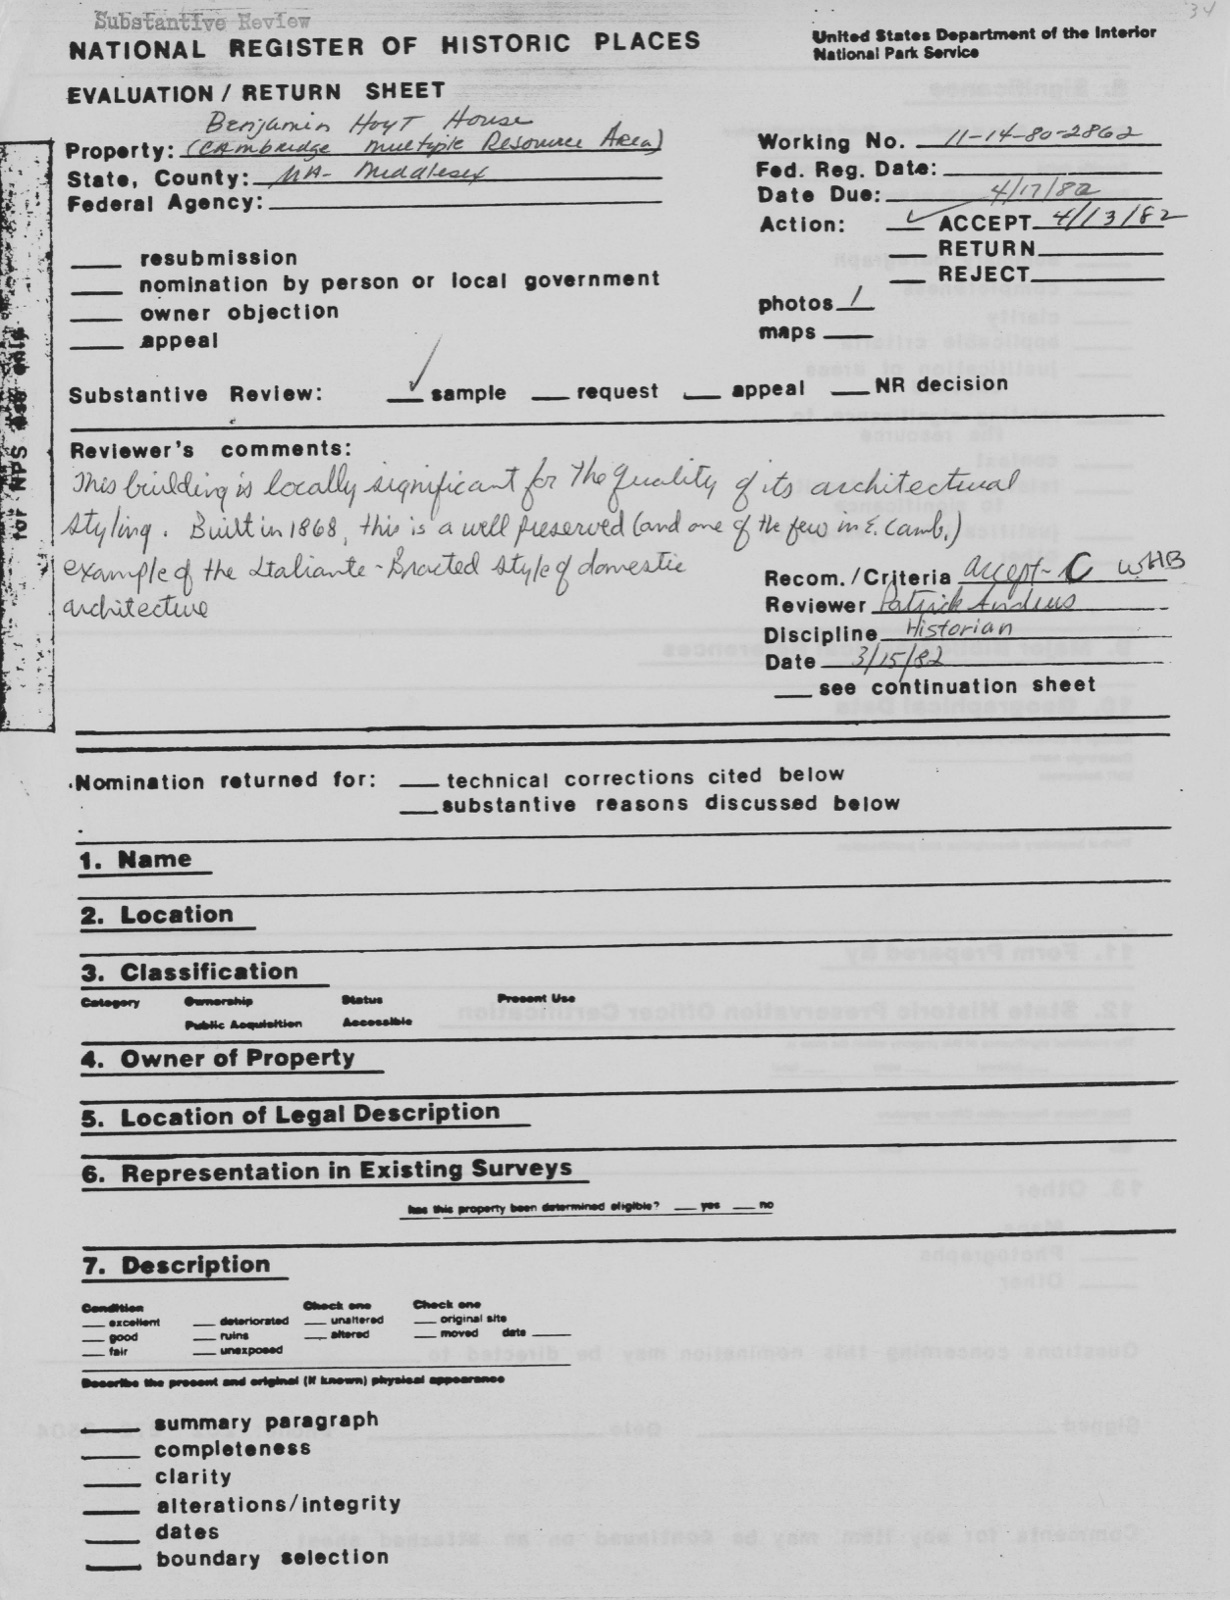 34
Substantive Review
NATIONAL REGISTER OF HISTORIC PLACES
United States Department of the Interior
National Park Service
EVALUATION / RETURN SHEET
Benjamin Hoyt House
Property: (Cambridge Multiple Resource Area)
State, County: MA- Middlesex
Federal Agency:
Working No. 11-14-80-2862
Fed. Reg. Date:
Date Due: 4/17/82
Action: ✓ ACCEPT 4/13/82
RETURN
REJECT
photos 1
maps
resubmission
nomination by person or local government
owner objection
appeal
for NPS use only
Substantive Review: ✓ sample request appeal NR decision
Reviewer's comments:
This building is locally significant for the quality of its architectural
styling. Built in 1868, this is a well preserved (and one of the few in E. Camb.)
example of the Italiante-Bracted style of domestic
architecture
Recom./Criteria accept-C WHB
Reviewer Patrick Andrus
Discipline Historian
Date 3/15/82
see continuation sheet
Nomination returned for: technical corrections cited below
substantive reasons discussed below
1. Name
2. Location
3. Classification
Category Ownership Status Present Use
Public Acquisition Accessible
4. Owner of Property
5. Location of Legal Description
6. Representation in Existing Surveys
has this property been determined eligible? yes no
7. Description
Condition Check one Check one
excellent deteriorated unaltered original site
good ruins altered moved date
fair unexposed
Describe the present and original (if known) physical appearance
summary paragraph
completeness
clarity
alterations/integrity
dates
boundary selection